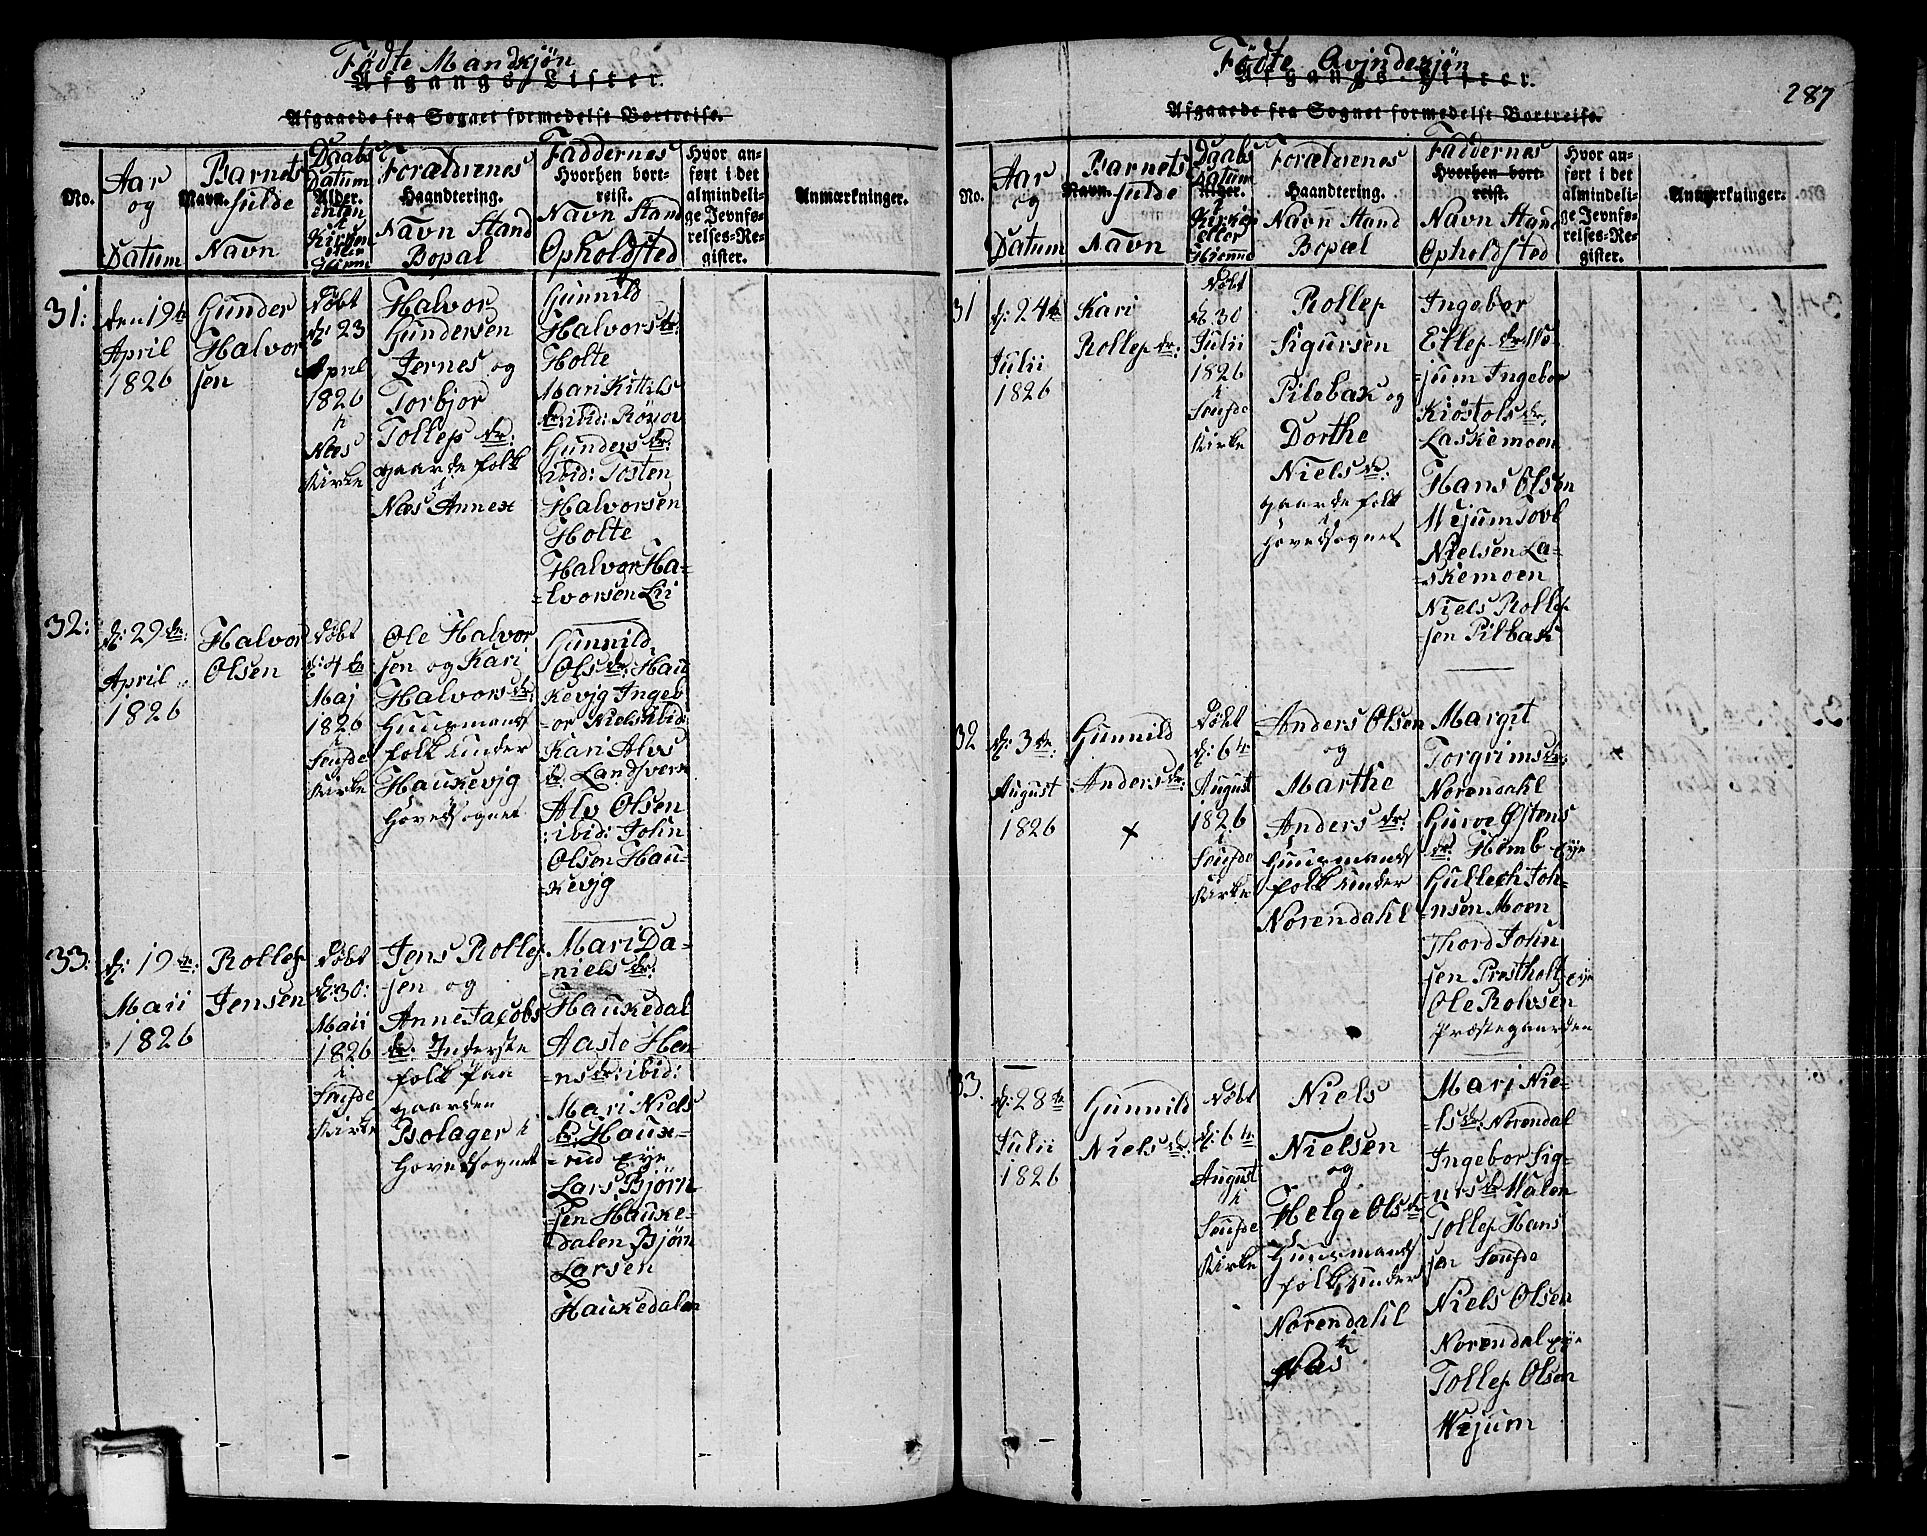 Födte Mandkjön
Afgangs-Lister.
Afgaaede fra Sognet formedelst Bortreise.
No.
Aar
og
Datum
Barnets
Navn. fulde
Navn
Daabs
Datum
Alder.
i
Kirken
eller
Hiemme
Forældrenes
Haandtering.
Navn Stand
Bopæl
Faddernes
Hvorhen bort-
reist.
Navn Stand
Opholdsted
Hvor an-
ført i det
almindeli-
ge Jevnfø-
relses-Re-
gister.
Anmærkninger.
31:
den 19de
April
1826
Gunder
Halvor
sen
døbt
d: 23
April
1826
i
Næs
Kirke
Halvor
Gundersen
Jernes og
Torbjor
Tollefs dr:
gaarde folk
i
Næs Annex
Gunnild
Halvors dr:
Holte
Mari Kittils
dr ibid: Røyor
Gunders dr:
ibid: Tosten
Halvorsen
Holte
Halvor Ha-
-lvorsen Lii
32:
d: 29de:
April
1826
Halvor
Olsen
døbt
d: 4de
Maj
1826
i
Soufde
Kirke
Ole Halvor
sen og Kari
Halvors dr:
Huusmands
folk under
Haukevjg
Hovedsognet
Gunnild
Ols dr: Hau
kevjg Ingeb
-or Niels ibid:
Kari Alvs
dr. Landsverk
Alv Olsen
: ibid: John
Olsen Hau-
-kevjg
33:
d: 19de:
Maii
1826
Rollef
Jensen
døbt
d: 30:
Maii
1826
i
Soufde
Kirke
Jens Rollef
sen og
Anne Jacobs
dr: Inderste
folk paa
gaarden
Bolager i
Hovedsognet
Mari Da-
-niels dr:
Haukedal
Aaste Hen
-ns dr: ibid:
Mari Niels
dr: Hauk-
-rud eye
Lars Bjørn
-sen Hauke-
dalen Bjørn
Larsen
Haukedalen
Födte Qvindekjön
287
Afgangs-Lister.
Afgaaede fra Sognet formedelst Bortreise.
No.
Aar
og
Datum
Barnets
Navn. fulde
Navn
Daabs
Datum
Alder.
i
Kirken
eller
Hiemme
Forældrenes
Haandtering.
Navn Stand
Bopæl
Faddernes
Hvorhen bort-
reist.
Navn Stand
Opholdsted
Hvor an-
ført i det
almindeli-
ge Jevnfø-
relses-Re-
gister.
Anmærkninger.
31
d: 24de
Julii
1826
Kari
Rollefs dr:
Døbt
d: 30
Julii
1826
i
Soufde
Kirke
Rollef
Sigursen
Pilebak og
Dorthe
Niels dr:
gaarde folk
i
Hovedsognet
Ingebor
Ellefs dr: We
-jum Ingebor
Kiøstols dr,
Laskemoen
Hans Olsen
Wejum Tovl
Nielsen La-
-skemoen
Niels Rollef
sen Pilbak
32
d: 3de:
August
1826
Gunnild
Anders dr:
+
Døbt
d: 6te
August
1826
i
Soufde
Kirke
Anders Olsen
og
Marthe
Anders dr:
Huusmands
folk under
Norendahl
Margit
Torgrims dr:
Norendahl
Gurve Østens
dr: Homb eye
Gullech Joh-
-nsen Moen
Thord John
sen Prestholt eye
Ole Rolvsen
Præstegaarden
33.
d: 28de
Julii
1826
Gunnild
Niels dr:
Døbt
d: 6te
August
i
Soufde
Kirke
Niels
Nielsen
og
Helge Ols dr
Huusmands
folk under
Norendahl
i
Næs
Mari Nie-
-ls dr: Norendal
Ingebor Sig-
-urs dr Walen
Tollef Hans
sen Soufde
Niels Olsen
Norendal eye
Tollef Olsen
Wejum